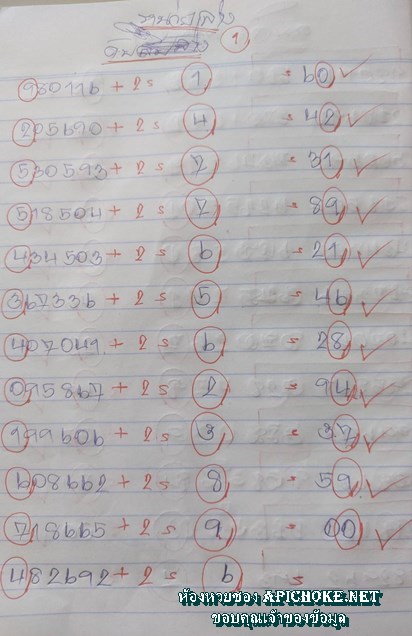 1
980116 + 2 = 1 = 60 ✓
205690 + 2 = 4 = 42 ✓
530593 + 2 = 7 = 31 ✓
518504 + 2 = 7 = 89 ✓
434503 + 2 = 6 = 21 ✓
367336 + 2 = 5 = 46 ✓
407041 + 2 = 6 = 28 ✓
095867 + 2 = 2 = 94 ✓
199606 + 2 = 3 = 37 ✓
608662 + 2 = 8 = 59 ✓
718665 + 2 = 9 = 00 ✓
482692 + 2 = 6 =
ห้องหวยซอง APICHOKE.NET
ขอบคุณเจ้าของข้อมูล